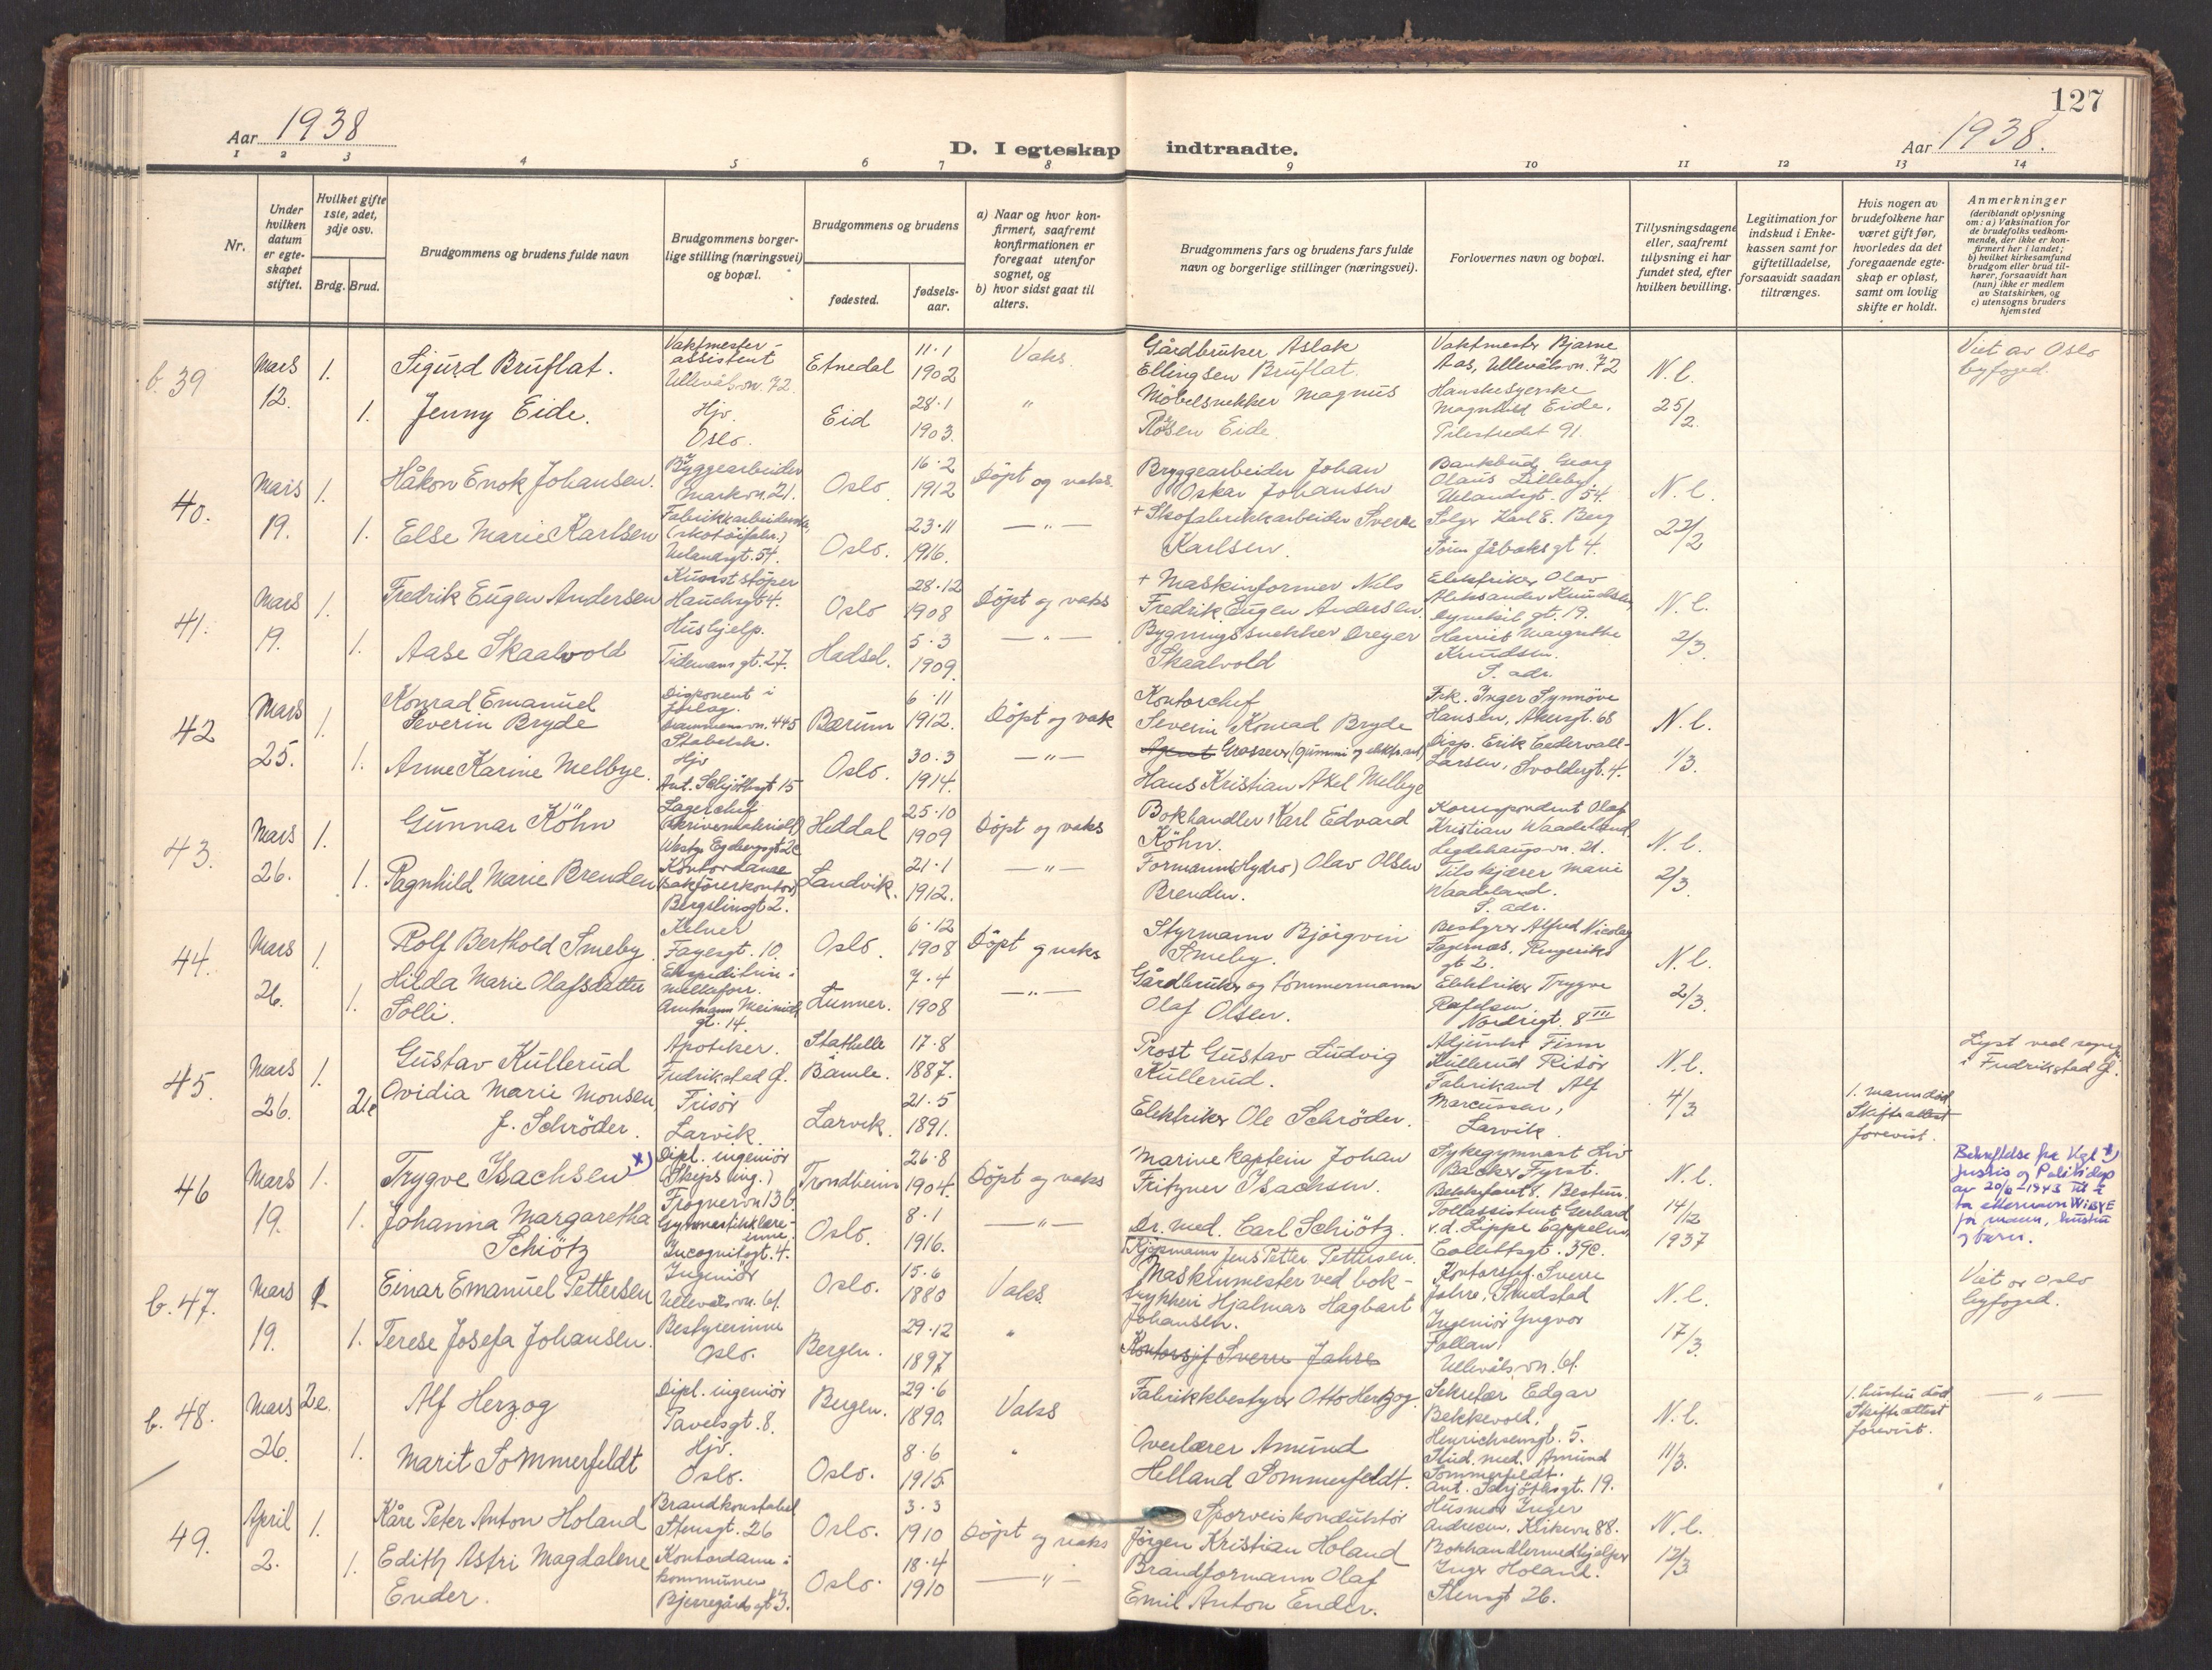 127
Aar 1938
D. I egteskap indtraadte.
Aar 1938.
1 2 3 4 5 6 7 8 9 10 11 12 13 14
Nr.
Under hvilken datum er egteskapet stiftet.
Hvilket gifte 1ste, 2det, 3dje osv.
Brdg. Brud.
Brudgommens og brudens fulde navn
Brudgommens borgerlige stilling (næringsvei) og bopæl.
Brudgommens og brudens
fødested.
fødselsaar.
a) Naar og hvor konfirmert, saafremt konfirmationen er foregaat utenfor sognet, og
b) hvor sidst gaat til alters.
Brudgommens fars og brudens fars fulde navn og borgerlige stillinger (næringsvei).
Forlovernes navn og bopæl.
Tillysningsdagene eller, saafremt tillysning ei har fundet sted, efter hvilken bevilling.
Legitimation for indskud i Enkekassen samt for giftetilladelse, forsaavidt saadan tiltrænges.
Hvis nogen av brudefolkene har været gift før, hvorledes da det foregaaende egteskap er opløst, samt om lovlig skifte er holdt.
Anmerkninger
(deriblandt oplysning om: a) Vaksination for de brudefolks vedkommende, der ikke er konfirmert her i landet; b) hvilket kirkesamfund brudgom eller brud tilhører, forsaavidt han (hun) ikke er medlem av Statskirken, og c) utensogns bruders hjemsted
b. 39
Mars 12.
1.
Sigurd Bruflat.
Vaktmester-assistent
Ullevålsvn. 72
Etnedal
11.1 1902
Vaks.
Gårdbruker Aslak
Ellingsen Bruflat.
Vaktmester Bjarne
Aas, Ullevålsvn. 72
N. l.
25/2
Viet av Oslo
byfoged.
1.
Jenny Eide.
Hjv.
Oslo.
Eid
28.1 1903.
"
Møbelsnekker Magnus
Rosen Eide
Hanskesyerske
Magnhild Eide.
Pilestredet 91.
40.
Mars 19.
1.
Håkon Enok Johansen.
Byggearbeider
Markvn. 21.
Oslo.
16.2 1912
Döpt og vaks.
Bryggearbeider Johan
Oskar Johansen
Bankbud Georg
Olaus Lilleby
Uelandsgt. 54.
N. l.
22/2
1.
Else Marie Karlsen
Fabrikkarbeiderske,
(skotöifabr.)
Uelandsgt. 54.
Oslo.
23.11 1916.
— " —
+ Skofabrikkarbeider Sverre
Karlsen.
Selger Karl E. Berg
gt 4.
41.
Mars 19.
1.
Fredrik Eugen Andersen
Kunststöper
Hauchsgt 4.
Oslo
28.12 1908
Döpt og vaks
+ Maskinformer Nils
Fredrik Eugen Andersen.
Elektriker Olav
Aleksander Knudsen,
Dynekil gt. 19.
N. l.
2/3.
1.
Aase Skaalvold
Hushjelp.
Tidemans gt. 27.
Hadsel.
5.3 1909.
— " —
Bygningssnekker Dreyer
Skaalvold
Margrethe
Knudsen.
S. adr.
42
Mars 25.
1.
Konrad Emanuel
Severin Bryde
Disponent i
Drammensvn. 445
Stabekk.
Bærum
6.11 1912.
Döpt og vak
Kontorchef
Severin Konrad Bryde
Frk. Inger Synnöve
Hansen, Akersgt. 68
N. l.
1/3.
1.
Anne Karine Melbye.
Hjv
Ant. Schjöthsgt 15
Oslo.
30.3 1914.
— " —
Agent Grosserer (gummi og elektr. art)
Hans Kristian Axel Melbye
Disp. Erik Cedervall-
Larsen, Svoldergt. 4.
43.
Mars 26.
1.
Gunnar Köhn
Lagerchef
(skrivemateriell)
Westye Egebergsgt 2c
Heddal
25.10 1909
Döpt og vaks
Bokhandler Karl Edvard
Köhn.
Korrespondent Olaf
Kristian Waadeland,
Legdehaugsvn. 21.
N. l.
2/3.
1.
Ragnhild Marie Brenden
Kontordame
(sakförerkontor)
Bergsliensgt 2.
Landvik.
21.1 1912.
— " —
Formann (Hydro) Olav Olsen
Brenden.
Tilskjærer Marie
Waadeland.
S. adr.
44.
Mars 26.
1.
Rolf Berthold Smeby.
Kelner
Fagergt. 10.
Oslo.
6.12 1908
Döpt og vaks
Styrmann Björgvin
Smeby.
Bestyrer Alfred Nicolay
Fagernæs, Ringeriks
gt 2.
N. l.
2/3.
1.
Hilda Marie Olafsdatter
Solli.
Ekspeditrise i
melkeforr.
Amtmann Meinich
gt. 14.
Lunner.
7.4 1908
— " —
Gårdbruker og tömmermann
Olaf Olsen.
Elektriker Trygve
Rafdsen
Nordrigt. 8 III
45.
Mars 26.
1.
Gustav Kullerud
Apoteker.
Fredrikstad Ö.
Stathelle
Bamle.
17.8 1887.
Prost Gustav Ludvig
Kullerud.
Adjunkt Finn
Kullerud Risör
N. l.
4/3
Lyst ved sognepr.
i Fredrikstad Ö.
2e
Ovidia Marie Monsen
f. Schröder.
Frisör
Larvik.
Larvik.
21.5 1891.
Elektriker Ole Schröder.
Fabrikant Alf
Marcussen,
Larvik.
1. mann död
Skifteattest
forevist.
46
Mars 19.
1.
Trygve Isachsen x)
Dipl. ingeniör
(Skips ing.)
Frognervn 13 b
Trondheim
26.8 1904.
Döpt og vaks
Marinekaptein Johan
Fritzner Isachsen.
Sykegymnast Liv
Backer Fyrst.
Bekkefaret 8. Bestum.
N. l.
14/2
1937
Bekreftelse fra Kgl x)
Justis og Politidep
av 20/6-1943 til å
ta etternavn WISYE
for mann, hustru
og barn.
1.
Johanna Margaretha
Schiötz
Gymnastiklærerinne.
Incognitogt. 4.
Oslo.
8.1 1916.
— " —
Dr. med. Carl Schiötz.
Tollassistent Gerhard
v.d. Lippe Cappelen,
Collettsgt. 39c.
b. 47.
Mars 19.
1
Einar Emanuel Pettersen
Ingeniör
Ullevålsvn. 61.
Oslo.
15.6 1880
Vaks.
Kjöpmann Jens Petter Pettersen.
Kontorsjef Sverre
Jahre, Smestad
N. l.
17/3.
Viet av Oslo
byfoged.
1.
Terese Josefa Johansen.
Bestyrerinne
Oslo.
Bergen.
29.12 1897
"
Maskinmester ved bok-
trykkeri Hjalmar Hagbart
Johansen.
Kontorsjef Sverre Jahre
Ingeniör Yngvar
Follan,
Ullevålsvn. 61.
b. 48.
Mars 26.
2e.
Alf Herzog
Dipl. ingeniör
Pavelsgt. 8.
Bergen.
29.6 1890.
Vaks
Fabrikkbestyrer Otto Hertzog.
Sekretær Edgar
Bekkevold,
Henrichsensgt. 5.
N. l.
11/3.
1. hustru död
Skifteattest
forevist.
— " —
1.
Marit Sommerfeldt
Hjv.
Oslo.
Oslo.
8.6 1915
"
Overlærer Amund
Helland Sommerfeldt.
Stud. med. Amund
Sommerfeldt.
Ant. Schjöthsgt. 19.
49.
April 2.
1.
Kåre Peter Anton Holand
Brandkonstabel
Stensgt. 26
Oslo.
3.3 1910
Döpt og vaks
Sporveiskonduktör
Jörgen Kristian Holand
Husmor Inger
Andresen, Kirkevn 88.
N. l.
12/3
1.
Edith Astri Magdalene
Ender.
Kontordame i
kommunen
Bjerregårdsgt 3.
Oslo.
18.4 1910
— " —
Brandformann Olaf
Emil Anton Ender.
Bokhandlermedhjelper
Inger Holand.
Stensgt 26.